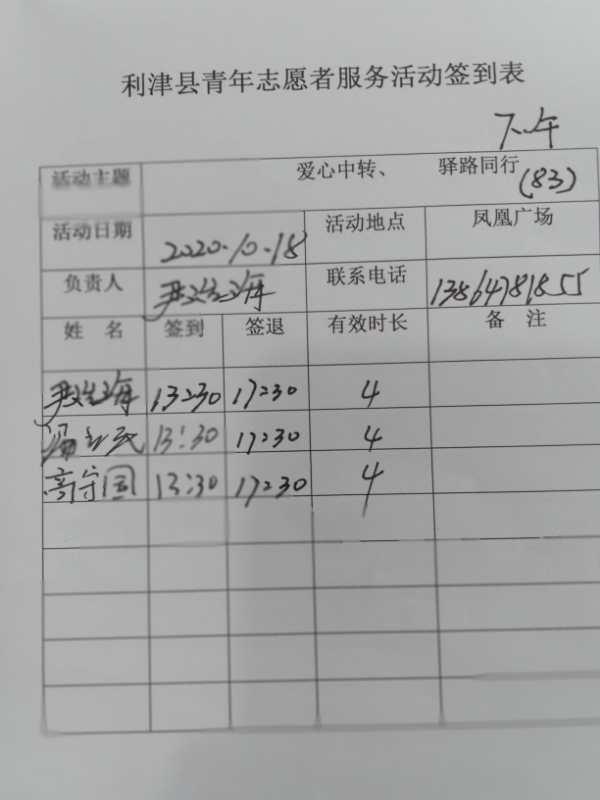 利津县青年志愿者服务活动签到表
下午
活动主题 爱心中转、 驿路同行 (83)
活动日期 2020.10.18 活动地点 凤凰广场
负责人 尹 海 联系电话 13864781855
姓 名 签到 签退 有效时长 备 注
尹 海 13:30 17:30 4
民 13:30 17:30 4
高守国 13:30 17:30 4